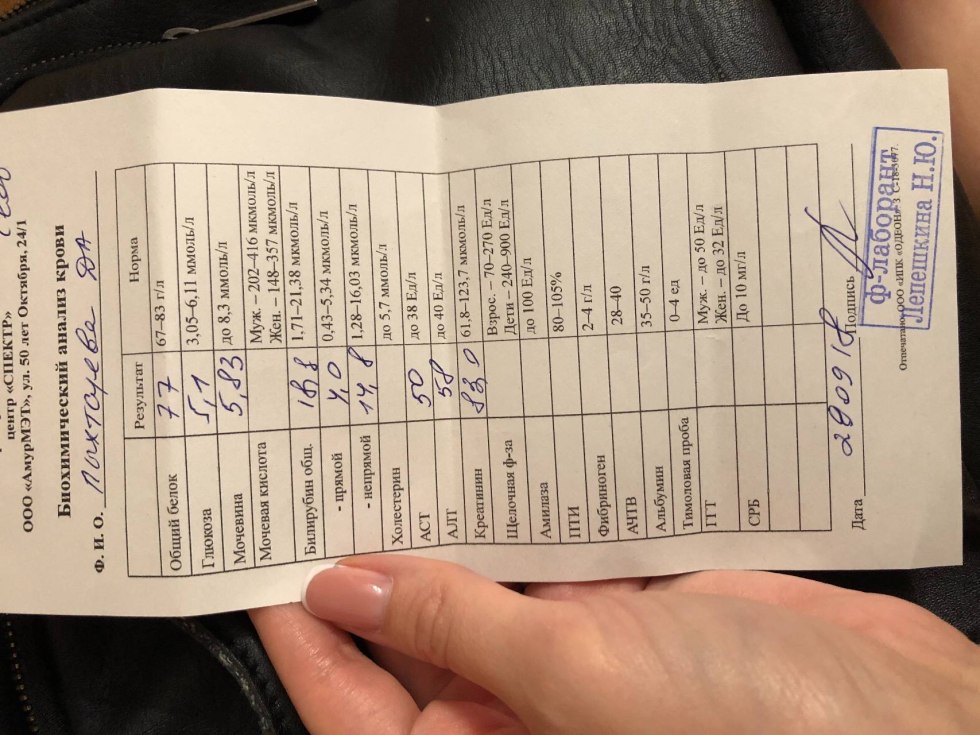 центр «СПЕКТР»
ООО «АмурМЭТ», ул. 50 лет Октября, 24/1
Биохимический анализ крови
Ф. И. О.
Результат Норма
Общий белок 77 67–83 г/л
Глюкоза 5,1 3,05–6,11 ммоль/л
Мочевина 5,83 до 8,3 ммоль/л
Мочевая кислота Муж. – 202–416 мкмоль/л
Жен. – 148–357 мкмоль/л
Билирубин общ. 18,8 1,71–21,38 мкмоль/л
- прямой 4,0 0,43–5,34 мкмоль/л
- непрямой 14,8 1,28–16,03 мкмоль/л
Холестерин до 5,7 ммоль/л
АСТ 50 до 38 Ед/л
АЛТ 58 до 40 Ед/л
Креатинин 83,0 61,8–123,7 мкмоль/л
Щелочная ф-за Взрос. – 70–270 Ед/л
Дети – 240–900 Ед/л
Амилаза до 100 Ед/л
ПТИ 80–105%
Фибриноген 2–4 г/л
АЧТВ 28–40
Альбумин 35–50 г/л
Тимоловая проба 0–4 ед
ГГТ Муж. – до 50 Ед/л
Жен. – до 32 Ед/л
СРБ До 10 мг/л
Дата 280918 Подпись
ф-лаборант
Лепешкина Н.Ю.
Отпечатано ООО «ИПК «ОДЕОН»